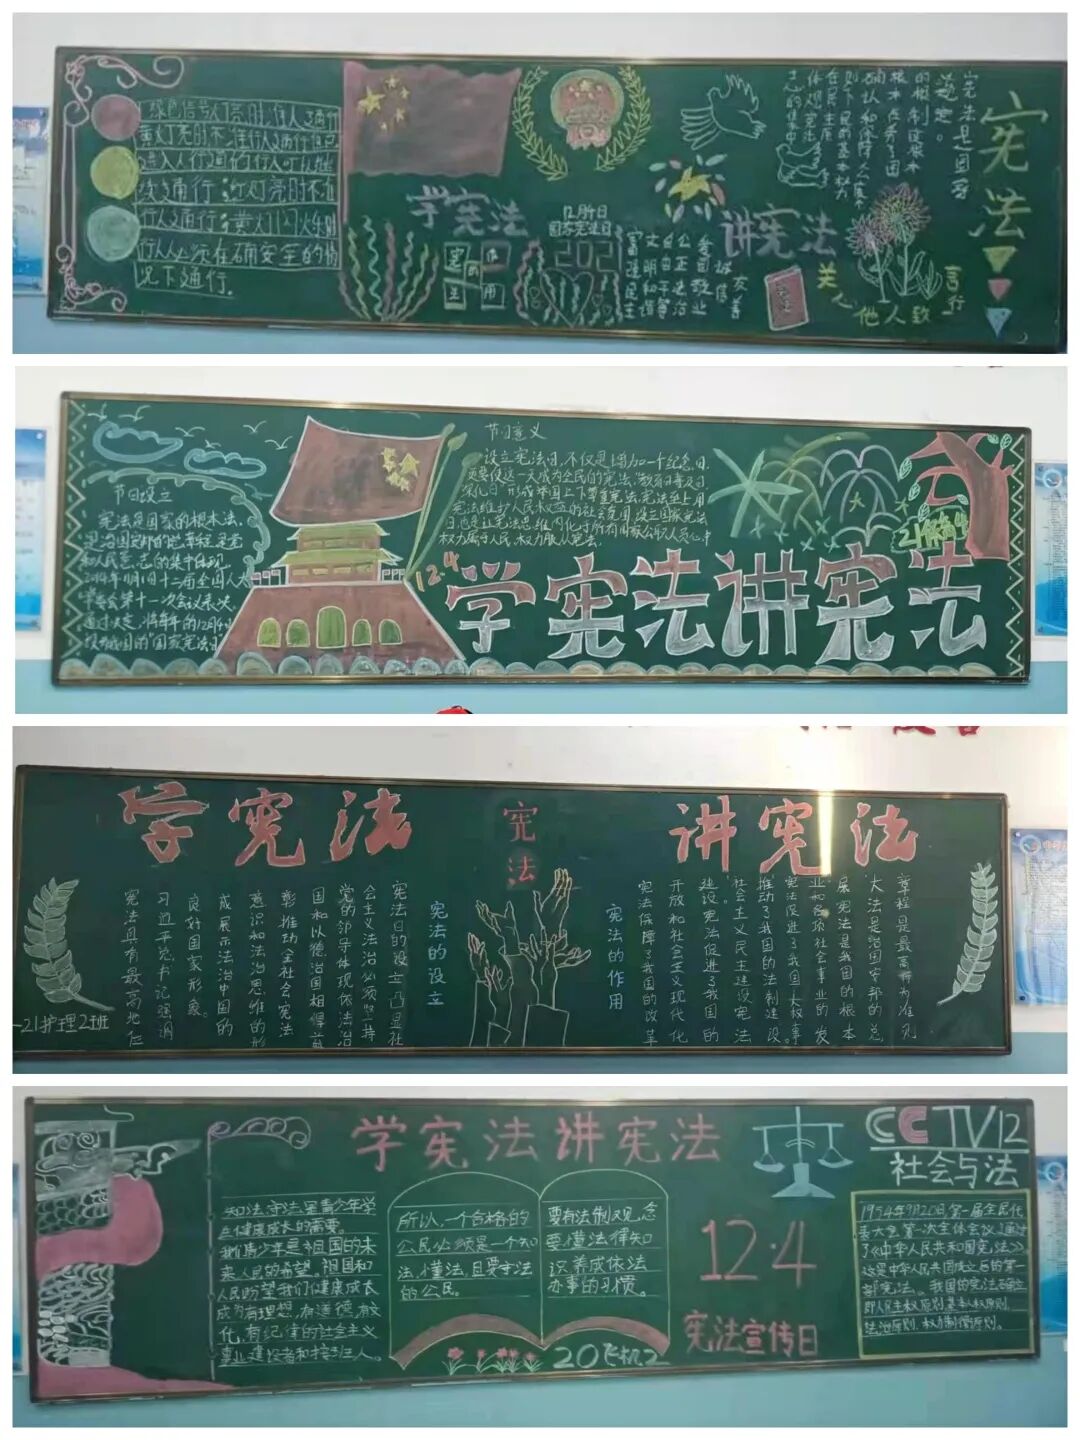 绿色信号灯亮时,准许行人通行
黄灯亮时不准行人通行但已
进入人行道的行人可以继
续通行;红灯亮时不准
行人通行;黄灯闪烁时
行人必须在确保安全的情
况下通行。
学宪法
12月4日
国家宪法日
202
讲宪法
富强民主
文明和谐
自由平等
公正法治
爱国敬业
诚信
友善
宪法
节日设立
宪法是国家的根本法,
是治国安邦的总章程,是党
和人民意志的集中体现
2014年11月1日十二届全国人大
常委会第十一次会议表决
通过决定,将每年的12月4日
设立为我国的国家宪法日
节日意义
设立宪法日,不仅是增加一个纪念日,
更要使这一天成为全民的宪法"教育日普及日
深化日"形成举国上下尊重宪法宪法至上用
宪法维护人民权益的社会氛围,设立国家宪法
日也是让宪法思维内化于所有国家公职人员心中
权力属于人民,权力服从宪法
12.4
学宪法讲宪法
学宪法
宪法
讲宪法
宪法的设立
宪法日的设立凸显社
会主义法治必须坚持
党的领导体现依法治
国和以德治国相得益
彰推动全社会宪法
意识和法治思维的形
成展示法治中国的
良好国家形象。
习近平总书记强调
宪法具有最高地位
21护理2班
宪法的作用
宪法保障了我国的改革
开放和社会主义现代化
建设宪法促进了我国的
社会主义民主建设宪法
推动了我国的法制建设。
宪法促进了我国人权事
业和各项社会事业的发
展宪法是我国的根本
大法是治国安邦的总
章程是最高行为准则
学宪法讲宪法
知法,守法,是青少年学
生健康成长的需要。
我们青少年是祖国的未
来人民的希望。祖国和
人民盼望我们健康成长
成为有理想,有道德,有文
化,有纪律的社会主义
事业建设者和接班人。
所以,一个合格的
公民必须是一个知
法,懂法,且要守法
的公民。
要有法制观念
要懂法律知
识养成依法
办事的习惯。
20飞机2
12·4
宪法宣传日
CCTV12
社会与法
1954年9月20日,第一届全民代
表大会第一次全体会议,通过
了《中华人民共和国宪法》。
这是中华人民共和国成立后的第一
部宪法。我国的宪法确立
即人民主权原则,基本人权原则,
法治原则,权力制衡原则。